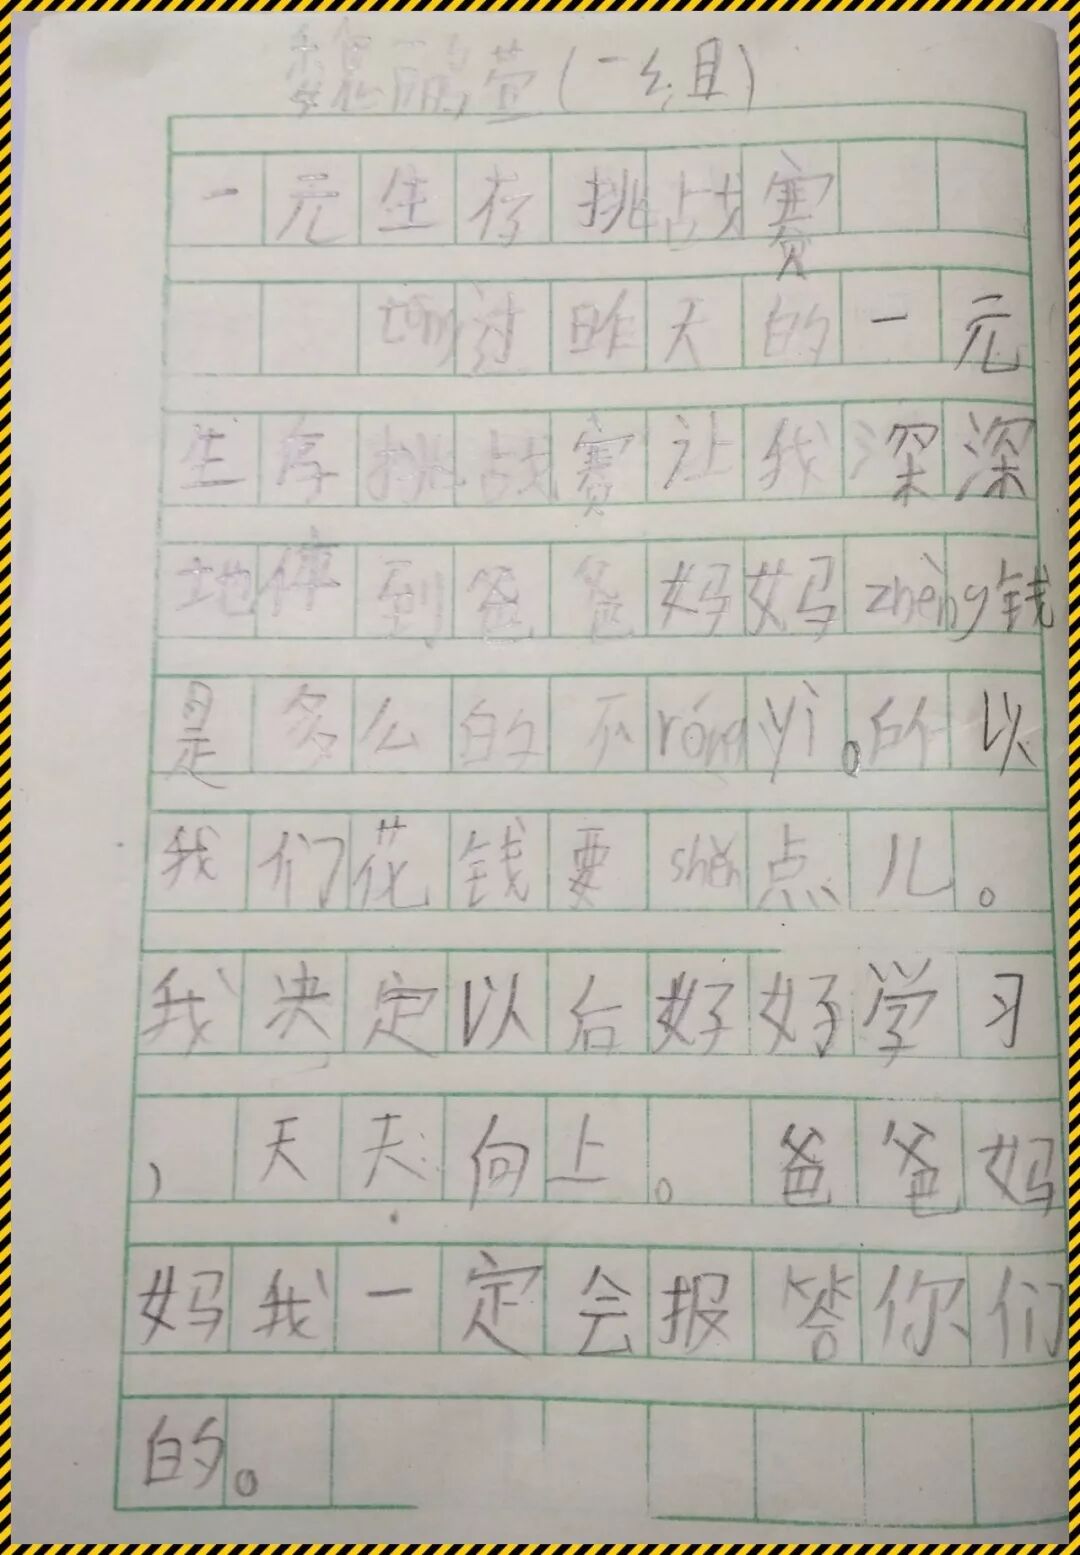 魏丽萱(一组)
一元生存挑战赛
tōng过昨天的一元
生存挑战赛让我深深
地体到爸爸妈妈zhèng钱
是多么的不róngyì。所以
我们花钱要shěn点儿。
我决定以后好好学习
,天天向上。爸爸妈
妈我一定会报答你们
的。